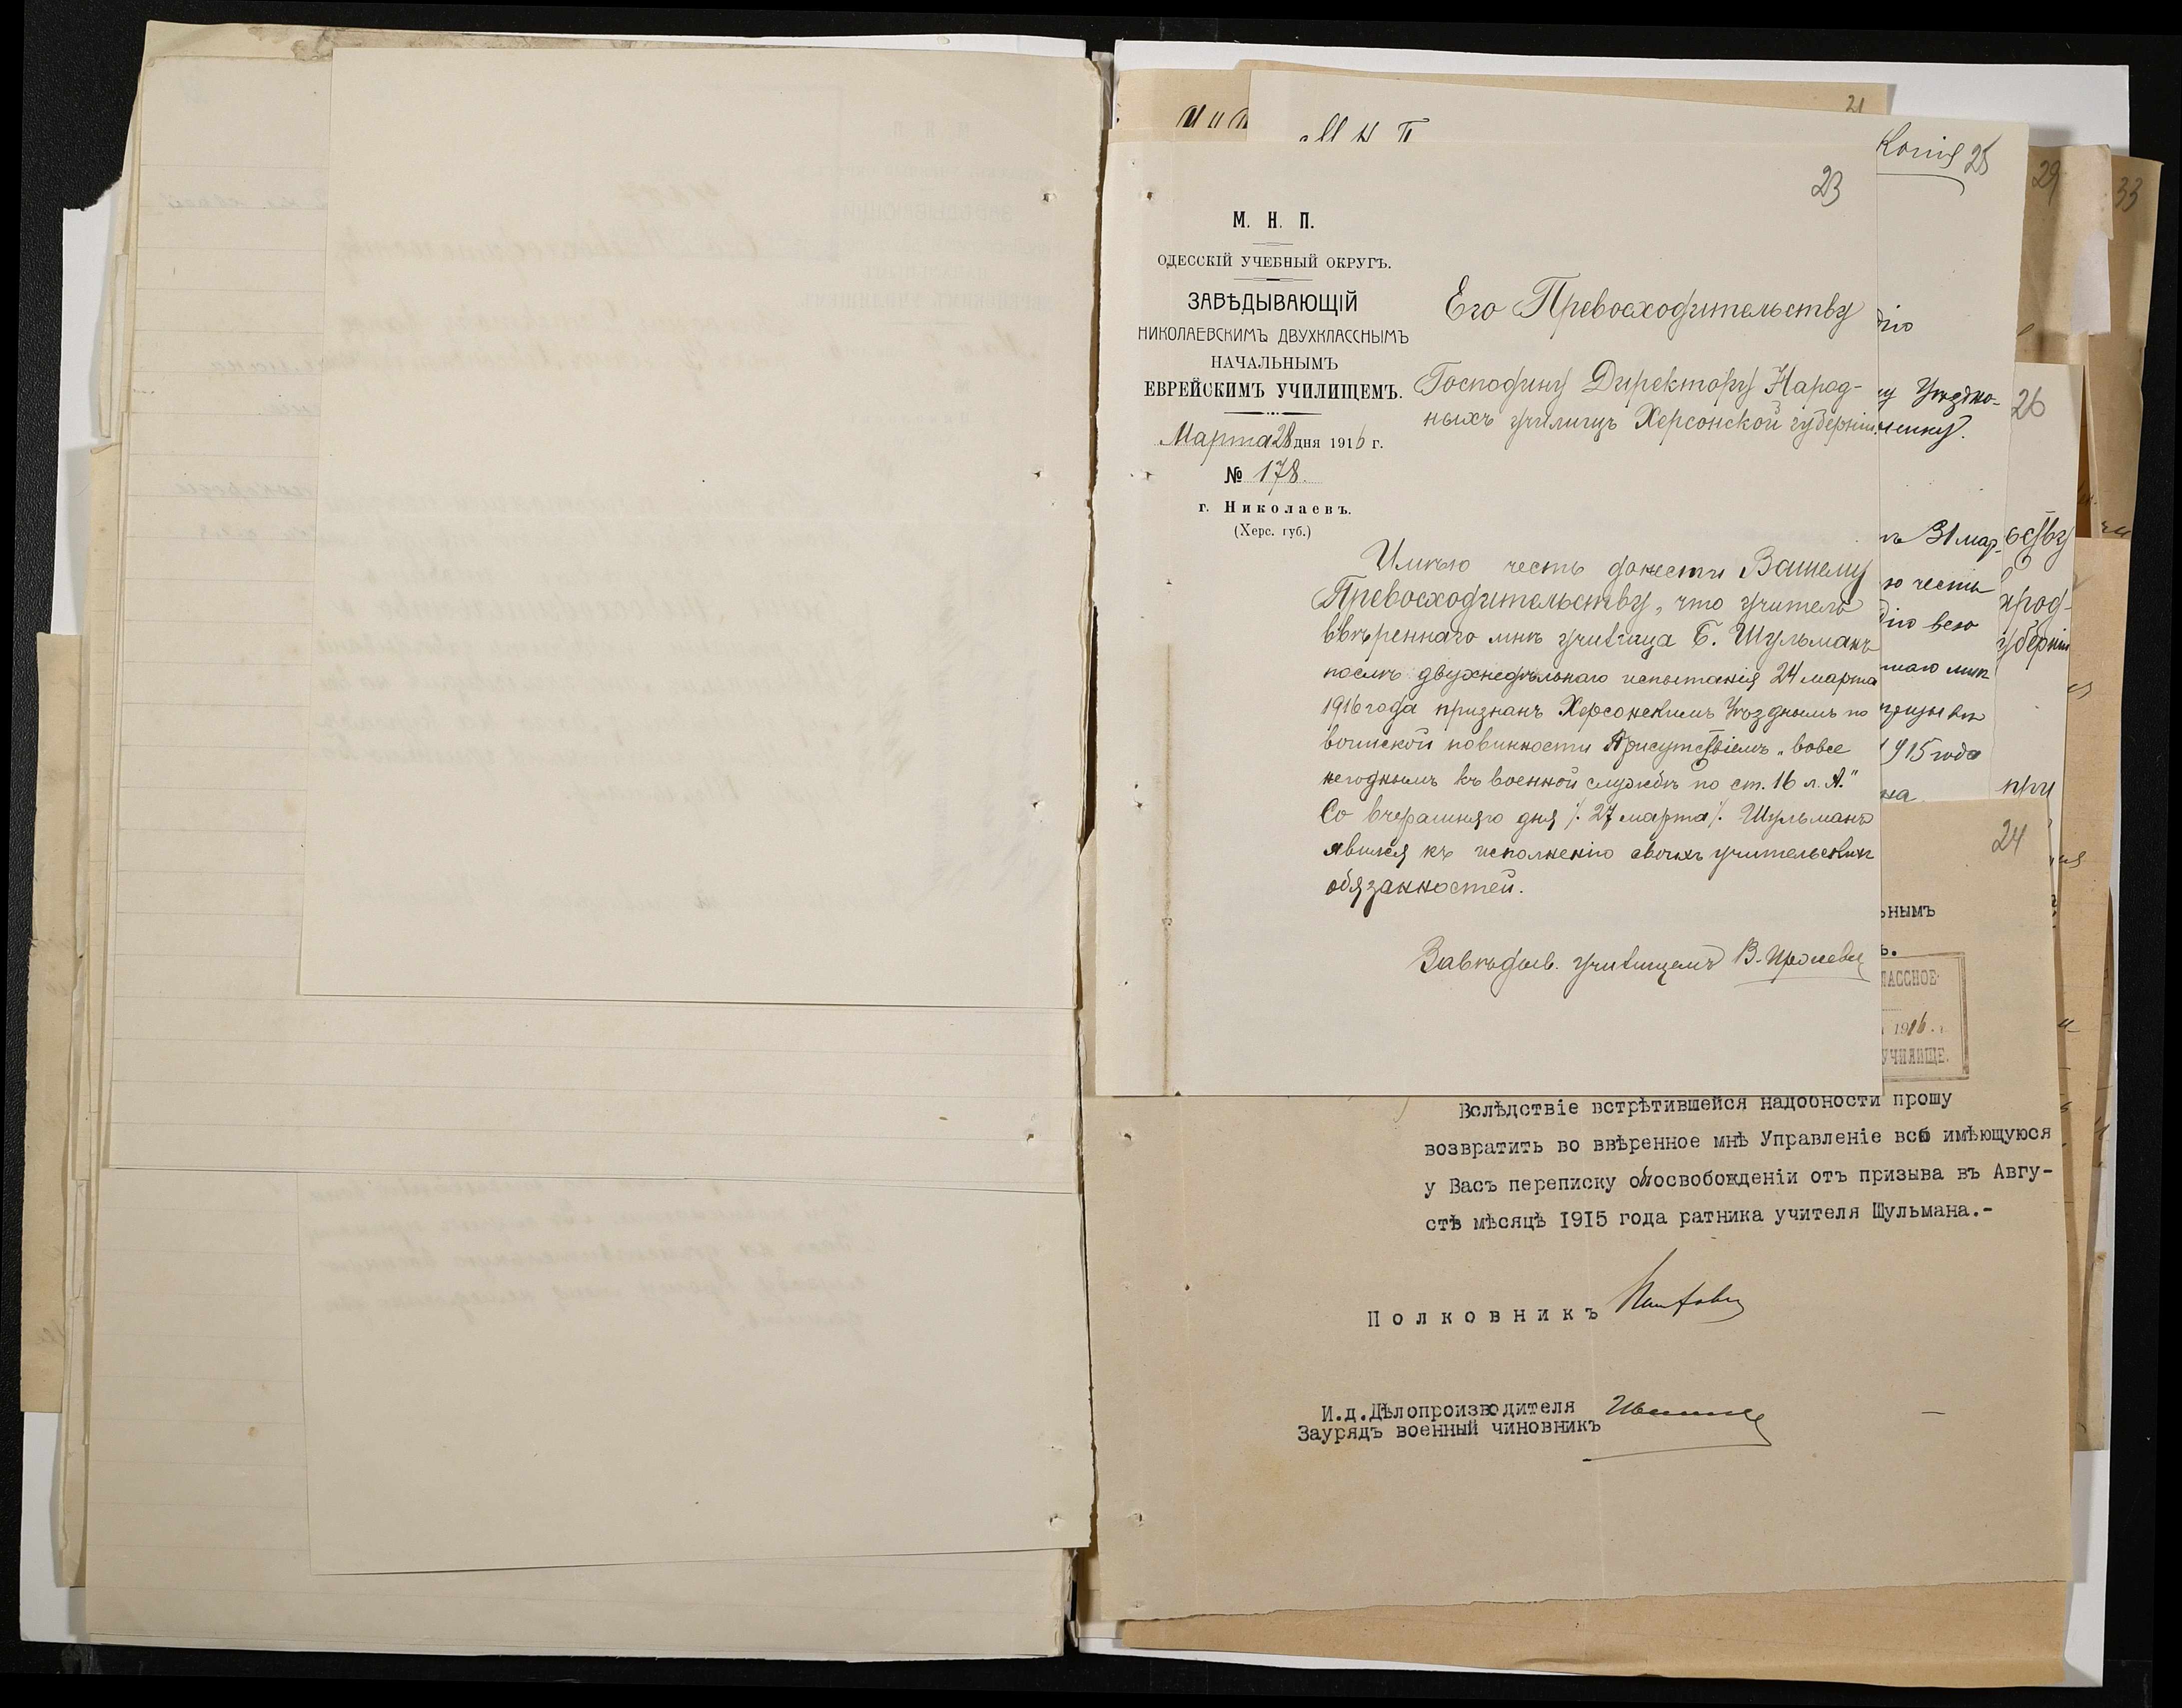 21
М и Н
М Н П
Копія 25
29
33
23
М. Н. П.
ОДЕССКІЙ УЧЕБНЫЙ ОКРУГЪ.
ЗАВѢДЫВАЮЩІЙ
НИКОЛАЕВСКИМЪ ДВУХКЛАССНЫМЪ
НАЧАЛЬНЫМЪ
ЕВРЕЙСКИМЪ УЧИЛИЩЕМЪ.
Марта 28 дня 1916 г.
№ 178.
г. Николаевъ.
(Херс. губ.)
Его Превосходительству
Господину Директору Народ-
ныхъ училищъ Херсонской губерніи.
Имѣю честь донести Вашему
Превосходительству, что учитель
ввѣреннаго мнѣ училища Б. Шульманъ
послѣ двухнедѣльнаго испытанія 24 марта
1916 года признанъ Херсонскимъ Уѣзднымъ по
воинской повинности Присутствіемъ „вовсе
негоднымъ къ военной службѣ по ст. 16 л. А."
Со вчерашняго дня /. 27 марта /. Шульманъ
явился къ исполненію своихъ учительскихъ
обязанностей.
Завѣдыв. училищемъ
дію
у Уѣздно-
нику.
31 мар-
ю честь
дію всю
маго мнѣ
1915 года
на
26
ству
арод-
уберніи
при
24
ьнымъ
ъ.
КЛАССНОЕ
1916 г.
УЧИЛИЩЕ.
Вслѣдствіе встрѣтившейся надобности прошу
возвратить во ввѣренное мнѣ Управленіе всю имѣющуюся
у Васъ переписку объ освобожденіи отъ призыва въ Авгу-
стѣ мѣсяцѣ 1915 года ратника учителя Шульмана.-
Полковникъ
И.д.Дѣлопроизводителя
Заурядъ военный чиновникъ